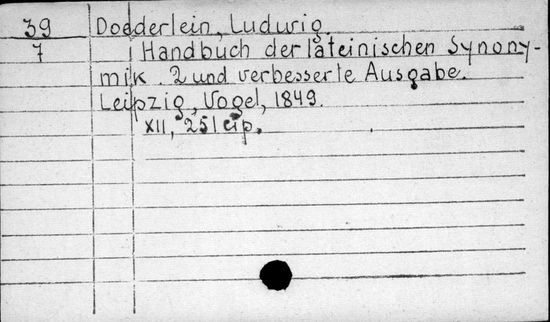 39 Doederlein, Ludwig.
7 Handbuch der lateinischen Synony-
mik. 2 und verbesserte Ausgabe.
Leipzig, Vogel, 1849.
XII, 251 eip.